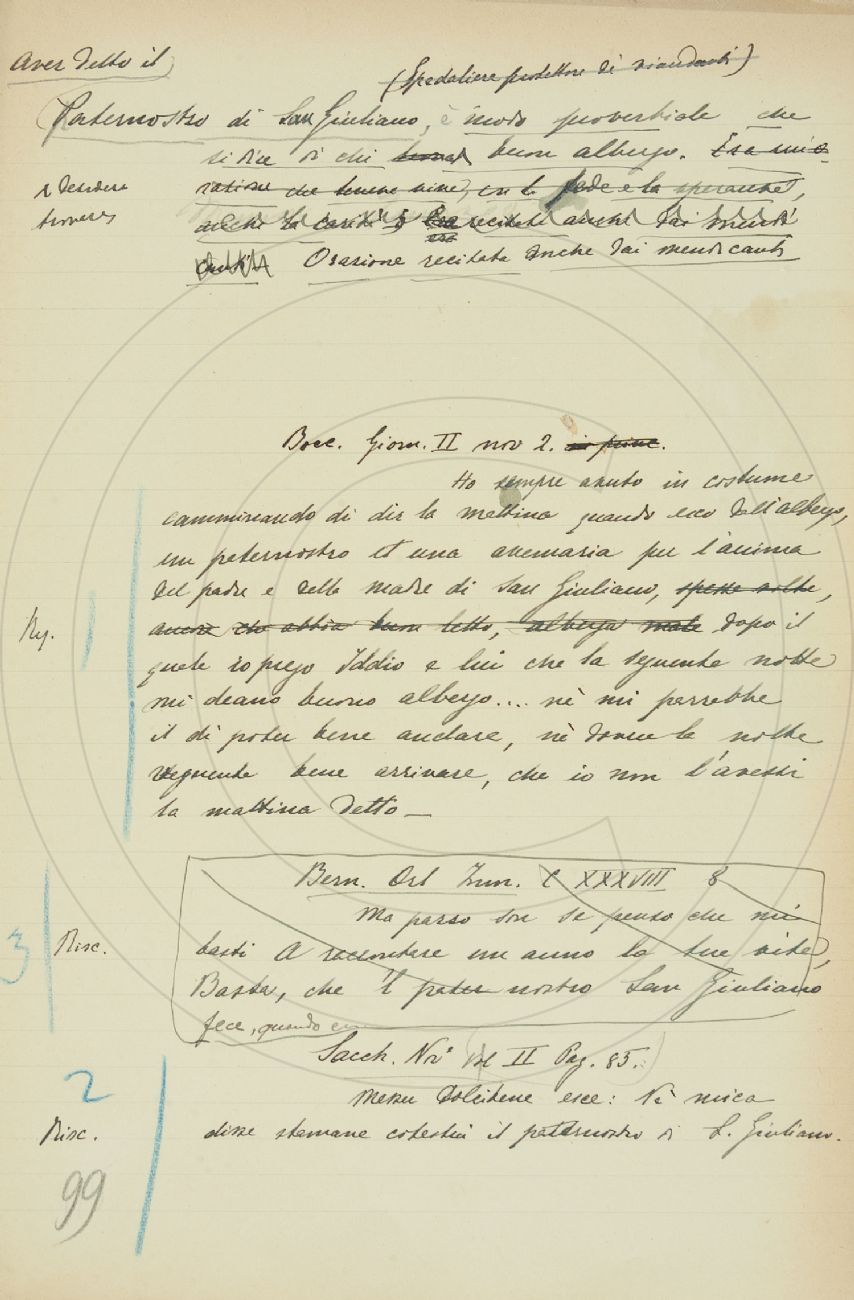 Aver detto il
(Spedaliere protettore di viandanti)
Paternostro di San Giuliano, è modo proverbiale che
si dice di chi buon albergo. Era una o-
e desidera
razione che teneva viva, con la fede e la speranza,
trovare
anche la carità recitata anche dai mendi
canti Orazione recitata anche dai mendicanti
Bocc. Giorn. II nov 2. in princ.
Ho sempre avuto in costume
camminando di dir la mattina quando esco dell'albergo,
un paternostro et una avemaria per l'anima
del padre e della madre di San Giuliano, spesse volte,
Ny.
ancora che abbia buon letto, alberga male dopo il
quale io prego Iddio e lui che la seguente notte
mi deano buono albergo.... nè mi parrebbe
il dì poter bene andare, nè dovere la notte
vegnente bene arrivare, che io non l'avessi
la mattina detto —
Bern. Orl Inn. C XXXVIII 8
Ma pazzo son se penso che mi
3 Risc.
basti A raccontare un anno la sua vita,
Basta, che 'l pater nostro San Giuliano
fece, quando
Sacch. Nov. Vol II Pag. 85.
2
Messer Dolcibene esce: Nè mica
Risc.
disse stamane costui il paternostro di S. Giuliano.
99